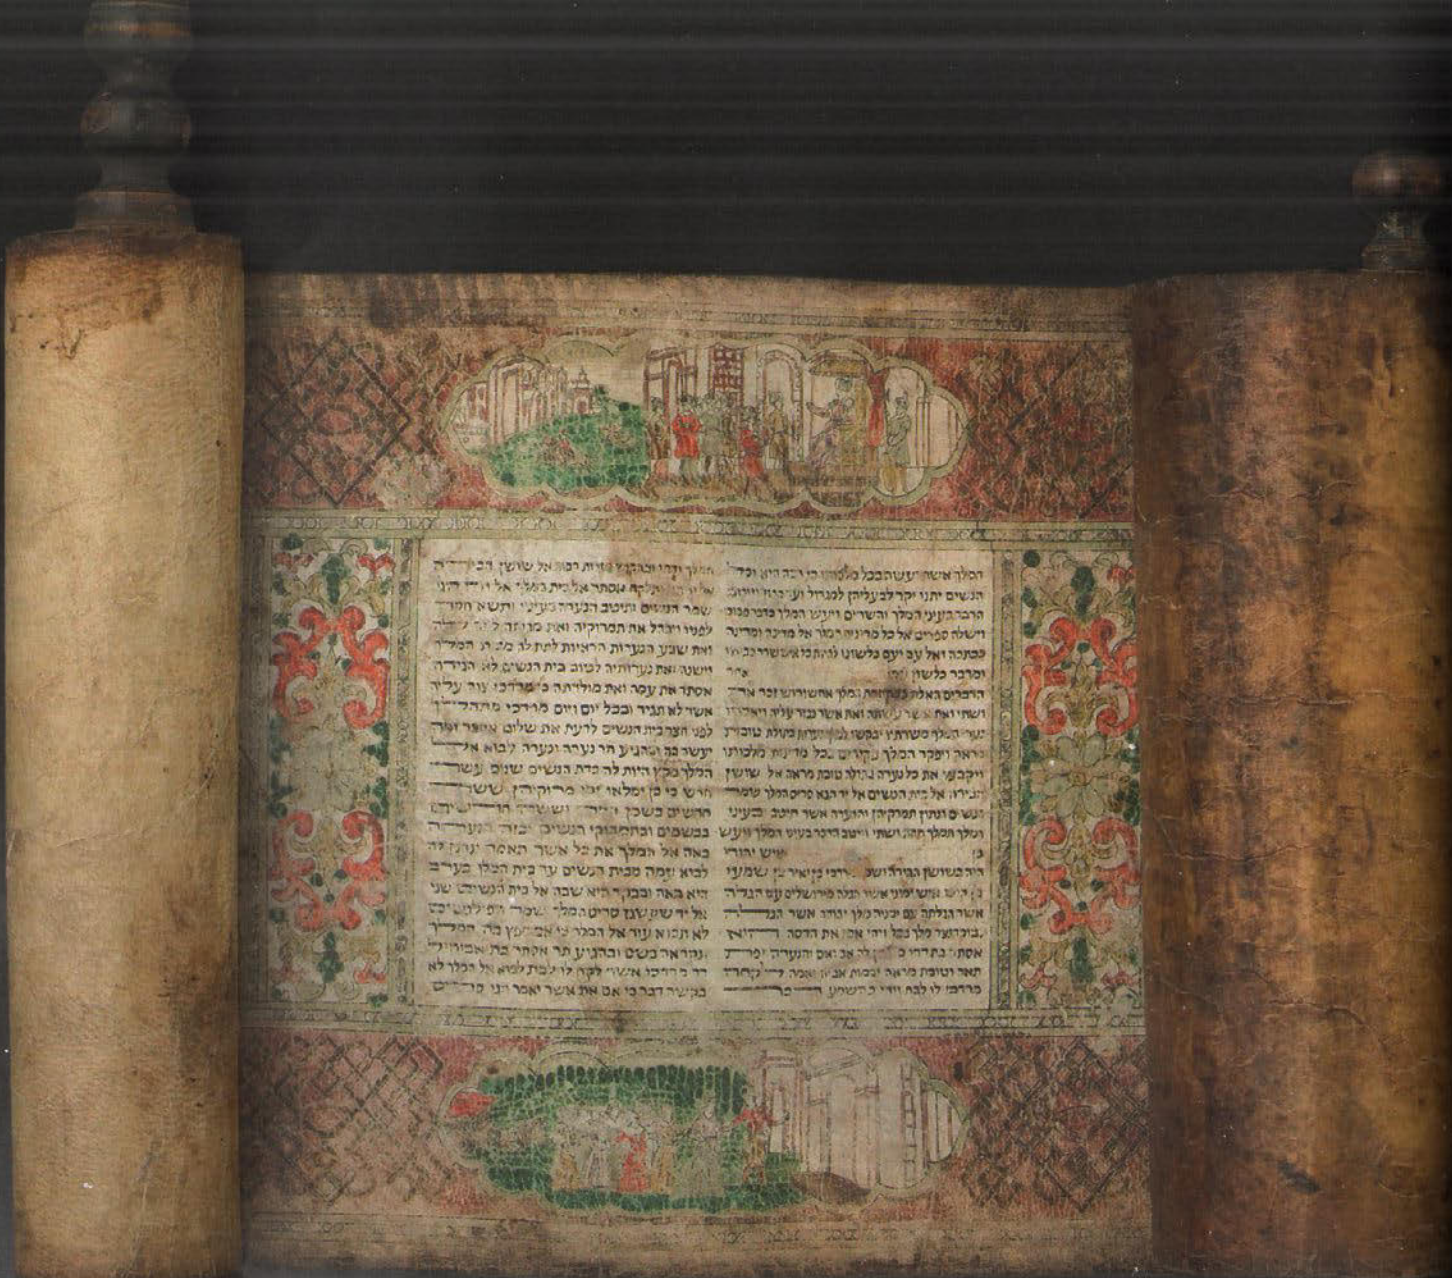 המלך אשר יעשה בכל מלכותו כי רבה היא וכל
הנשים יתנו יקר לבעליהן למגדול ועד קטן וייטב
הדבר בעיני המלך והשרים ויעש המלך כדבר ממוכן
וישלח ספרים אל כל מדינות המלך אל מדינה ומדינה
ככתבה ואל עם ועם כלשונו להיות כל איש שורר בביתו
ומדבר כלשון עמו אחר
הדברים האלה כשך חמת המלך אחשורוש זכר את
ושתי ואת אשר עשתה ואת אשר נגזר עליה ויאמרו
נערי המלך משרתיו יבקשו למלך נערות בתולות טובות
מראה ויפקד המלך פקידים בכל מדינות מלכותו
ויקבצו את כל נערה בתולה טובת מראה אל שושן
הבירה אל בית הנשים אל יד הגא סריס המלך שומר
הנשים ונתון תמרקיהן והנערה אשר תיטב בעיני
המלך תמלך תחת ושתי וייטב הדבר בעיני המלך ויעש
כן איש יהודי
היה בשושן הבירה ושמו מרדכי בן יאיר בן שמעי
בן קיש איש ימיני אשר הגלה מירושלים עם הגלה
אשר הגלתה עם יכניה מלך יהודה אשר הגלה
נבוכדנצר מלך בבל ויהי אמן את הדסה היא
אסתר בת דדו כי אין לה אב ואם והנערה יפת
תאר וטובת מראה ובמות אביה ואמה לקחה
מרדכי לו לבת ויהי בהשמע דבר
המלך ודתו ובהקבץ נערות רבות אל שושן הבירה
אל יד הגי ותלקח אסתר אל בית המלך אל יד הגי
שמר הנשים ותיטב הנערה בעיניו ותשא חסד
לפניו ויבהל את תמרוקיה ואת מנותה לתת לה
ואת שבע הנערות הראיות לתת לה מבית המלך
וישנה ואת נערותיה לטוב בית הנשים לא הגידה
אסתר את עמה ואת מולדתה כי מרדכי צוה עליה
אשר לא תגיד ובכל יום ויום מרדכי מתהלך
לפני חצר בית הנשים לדעת את שלום אסתר ומה
יעשה בה ובהגיע תר נערה ונערה לבוא אל
המלך מקץ היות לה כדת הנשים שנים עשר
חדש כי כן ימלאו ימי מרוקיהן ששה
חדשים בשמן המר וששה חדשים
בבשמים ובתמרוקי הנשים ובזה הנערה
באה אל המלך את כל אשר תאמר ינתן לה
לבוא עמה מבית הנשים עד בית המלך בערב
היא באה ובבקר היא שבה אל בית הנשים שני
אל יד שעשגז סריס המלך שמר הפילגשים
לא תבוא עוד אל המלך כי אם חפץ בה המלך
ונקראה בשם ובהגיע תר אסתר בת אביחיל
דד מרדכי אשר לקח לו לבת לבוא אל המלך לא
בקשה דבר כי אם את אשר יאמר הגי סריס